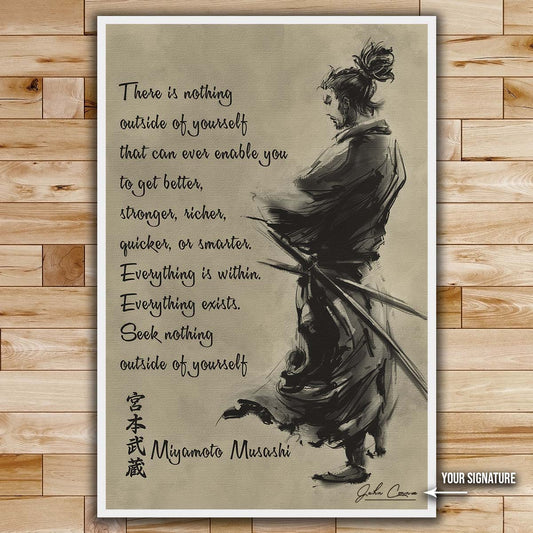 There is nothing
outside of yourself
that can ever enable you
to get better,
stronger, richer,
quicker, or smarter.
Everything is within.
Everything exists.
Seek nothing
outside of yourself
宮本武蔵
Miyamoto Musashi
YOUR SIGNATURE